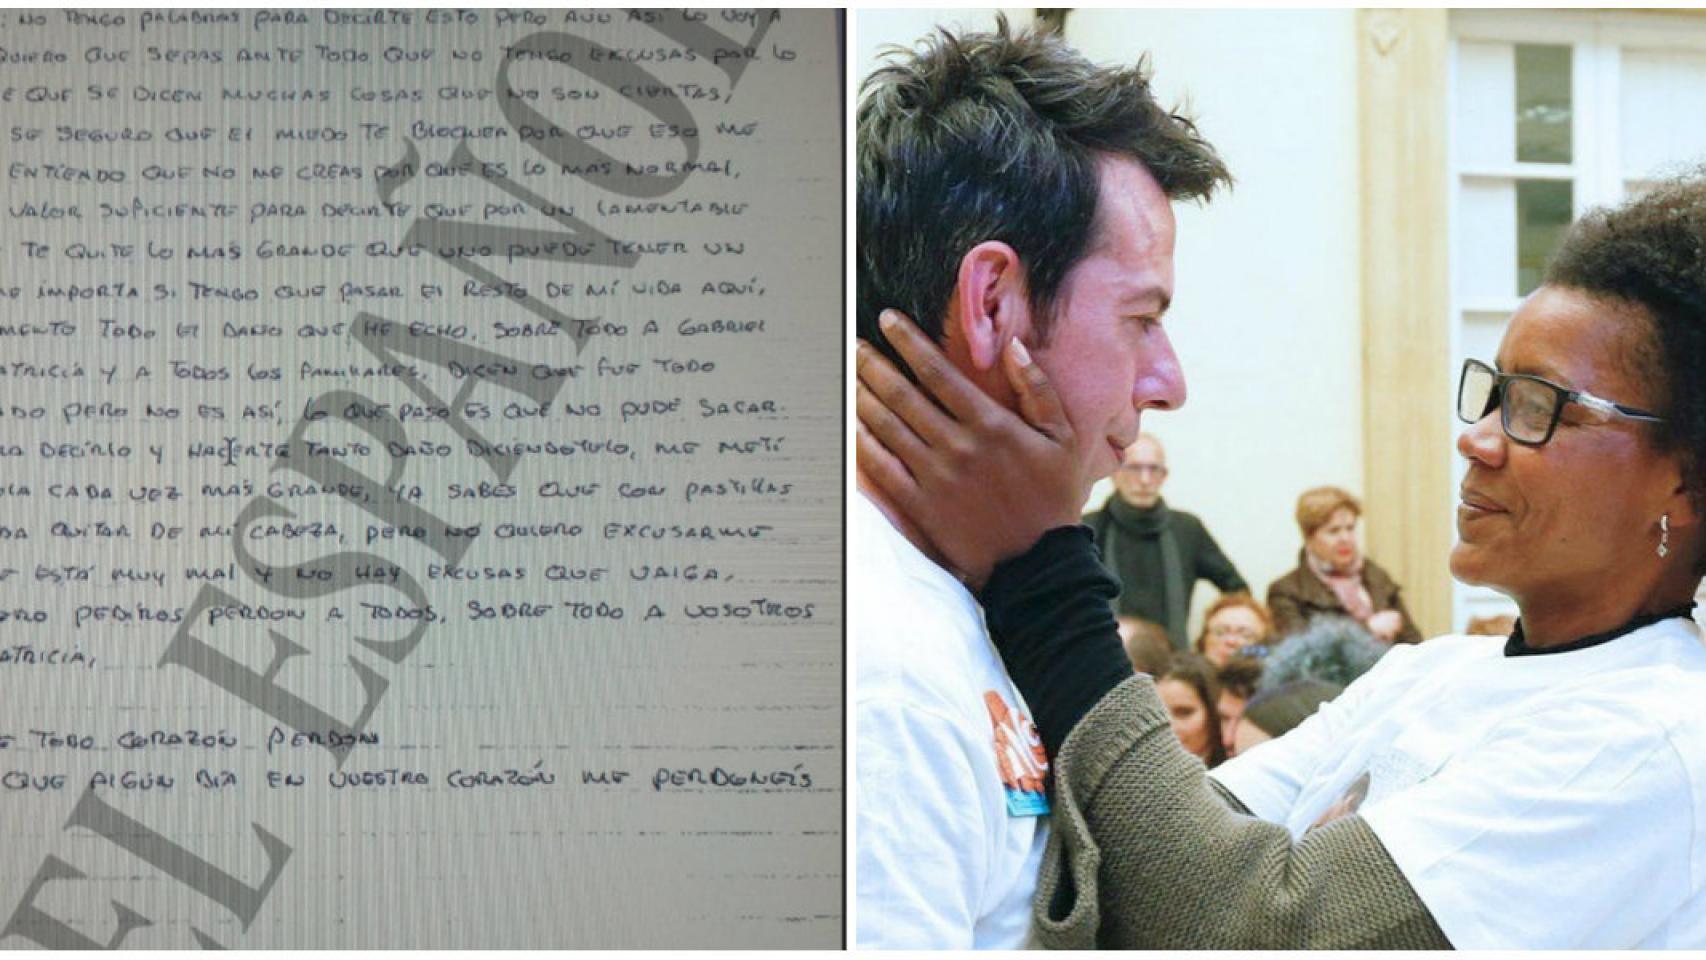 : NO TENGO PALABRAS PARA DECIRTE ESTO PERO AUN ASÍ LO VOY A
QUIERO QUE SEPAS ANTE TODO QUE NO TENGO EXCUSAS POR LO
E QUE SE DICEN MUCHAS COSAS QUE NO SON CIERTAS,
SE SEGURO QUE EL MIEDO TE BLOQUEA POR QUE ESO ME
ENTIENDO QUE NO ME CREAS POR QUE ES LO MAS NORMAL,
VALOR SUFICIENTE PARA DECIRTE QUE POR UN LAMENTABLE
TE QUITE LO MAS GRANDE QUE UNO PUEDE TENER UN
ME IMPORTA SI TENGO QUE PASAR EL RESTO DE MÍ VIDA AQUÍ,
MENTO TODO EL DAÑO QUE HE ECHO, SOBRE TODO A GABRIEL
ATRICIA Y A TODOS LOS FAMILIARES, DICEN QUE FUE TODO
ADO PERO NO ES ASÍ, LO QUE PASO ES QUE NO PUDE SACAR
RA DECIRLO Y HACERTE TANTO DAÑO DICIENDOTELO, ME METÍ
OLA CADA VEZ MAS GRANDE, YA SABES QUE CON PASTILLAS
DA QUITAR DE MI CABEZA, PERO NO QUIERO EXCUSARME
E ESTÁ MUY MAL Y NO HAY EXCUSAS QUE VALGA,
ERO PEDIROS PERDON A TODOS, SOBRE TODO A VOSOTROS
ATRICIA,
E TODO CORAZÓN PERDON
QUE ALGÚN DÍA EN VUESTRO CORAZÓN ME PERDONEÍS
EL ESPAÑOL